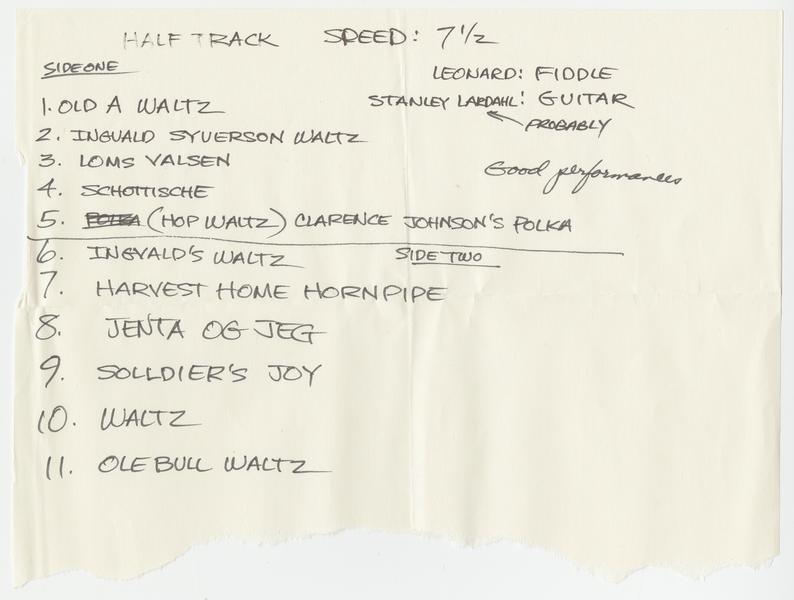 HALF TRACK SPEED: 7 1/2
SIDE ONE
LEONARD: FIDDLE
STANLEY LARDAHL: GUITAR
PROBABLY
Good performances
1. OLD A WALTZ
2. INGVALD SYVERSON WALTZ
3. LOMS VALSEN
4. SCHOTTISCHE
5. POLKA (HOP WALTZ) CLARENCE JOHNSON'S POLKA
SIDE TWO
6. INGVALD'S WALTZ
7. HARVEST HOME HORNPIPE
8. JENTA OG JEG
9. SOLLDIER'S JOY
10. WALTZ
11. OLE BULL WALTZ